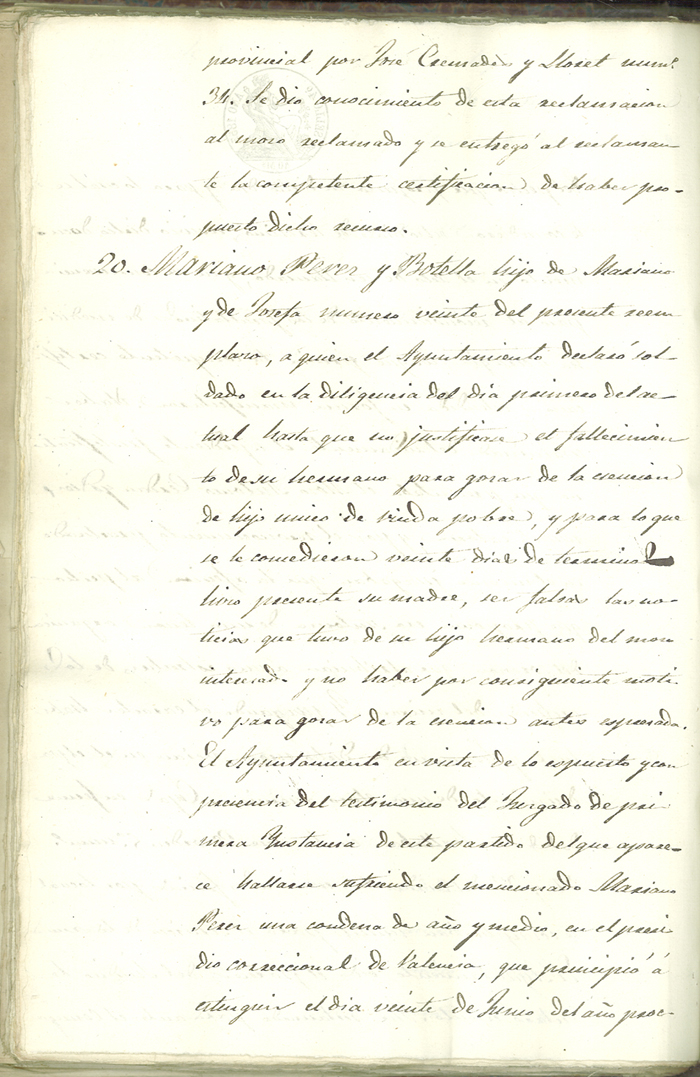 provincial por José Esenrador y Lloret num.º
34. Se dio conocimiento de esta reclamacion
al moso reclamado y se entregó al reclaman-
te la competente certificacion de haber pro-
puesto dicho recurso.
20. Mariano Peres y Botella hijo de Mariano
y de Josefa numero veinte del presente reem-
plaso, a quien el Ayuntamiento declaró sol-
dado en la diligencia del dia primero del ac-
tual hasta que no justificase el fallecimien-
to de su hermano para gosar de la esencion
de hijo unico de viuda pobre, y para lo que
se le consedieron veinte dias de termino
hiso presente su madre, ser falsa las no-
ticias que tuvo de su hijo hermano del moso
interesado y no haber por consiguiente moti-
vo para gosar de la esencion antes espresada.
El Ayuntamiento en vista de lo espuesto y con
presencia del testimonio del Jusgado de pri-
mera Ynstancia de este partido del que apare-
ce hallarse sufriendo el mencionado Mariano
Peres una condena de año y medio, en el presi-
dio correccional de Valencia, que principió á
estinguir el dia veinte de Junio del año proc-